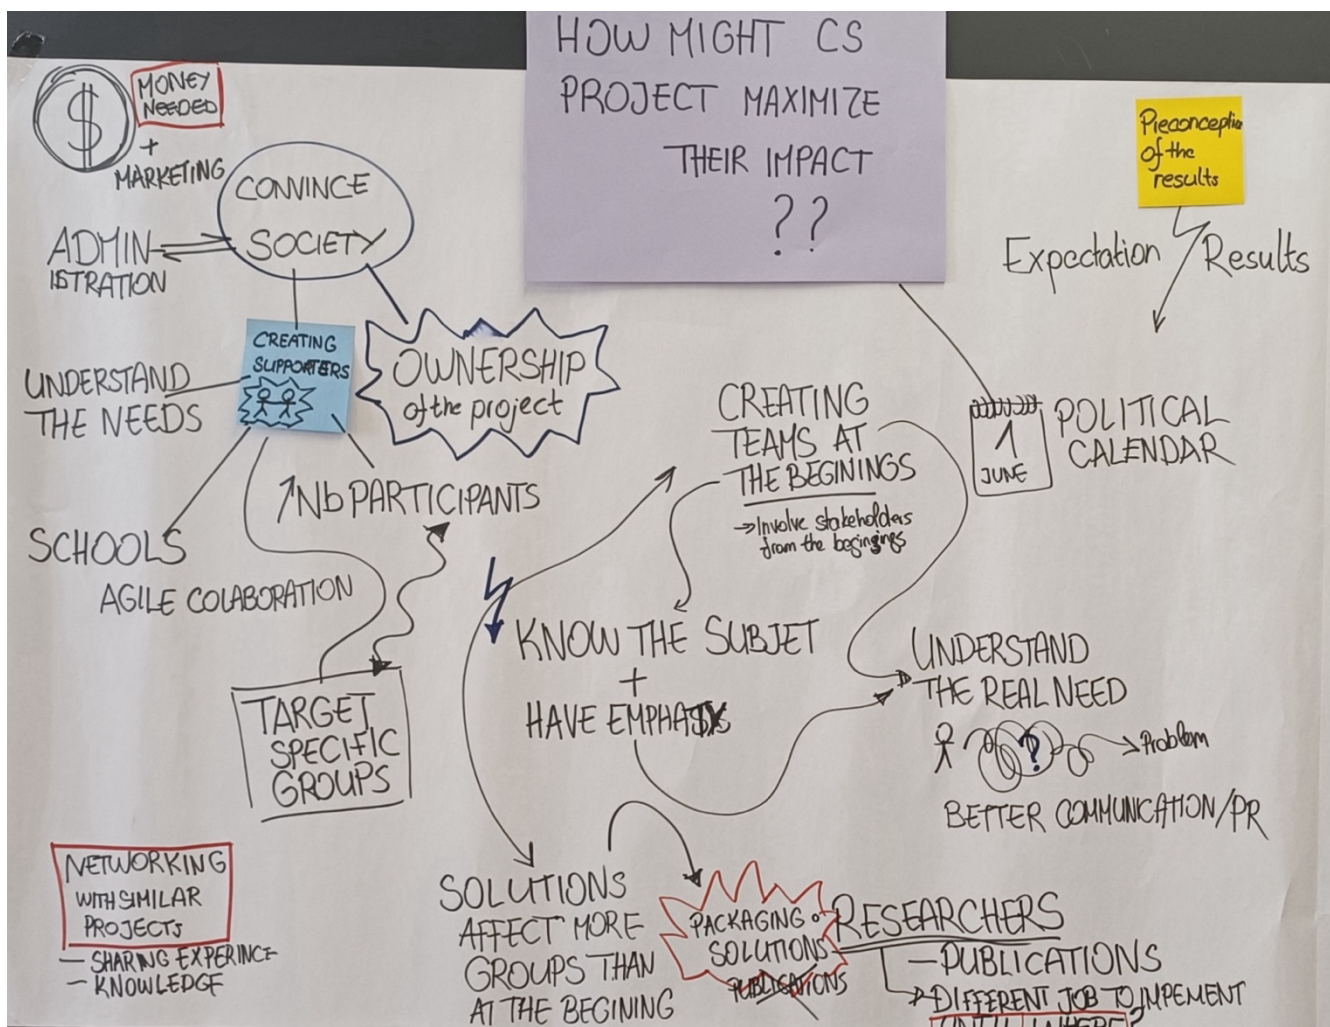 HOW MIGHT CS
PROJECT MAXIMIZE
THEIR IMPACT
??
$
MONEY
NEEDED
+
MARKETING
CONVINCE
SOCIETY
ADMIN
ISTRATION
CREATING
SUPPORTERS
OWNERSHIP
of the project
UNDERSTAND
THE NEEDS
↗Nb PARTICIPANTS
SCHOOLS
AGILE COLABORATION
TARGET
SPECIFIC
GROUPS
NETWORKING
WITH SIMILAR
PROJECTS
- SHARING EXPERINCE
- KNOWLEDGE
Preconception
of the
results
Expectation
Results
CREATING
TEAMS AT
THE BEGININGS
→ Involve stakeholders
from the beginings
1
JUNE
POLITICAL
CALENDAR
KNOW THE SUBJET
+
HAVE
UNDERSTAND
THE REAL NEED
?
→ Problem
BETTER COMMUNICATION/PR
SOLUTIONS
AFFECT MORE
GROUPS THAN
AT THE BEGINING
PACKAGING OF
SOLUTIONS
PUBLICATIONS
RESEARCHERS
- PUBLICATIONS
→ DIFFERENT JOB TO IMPEMENT
UNTIL WHERE?